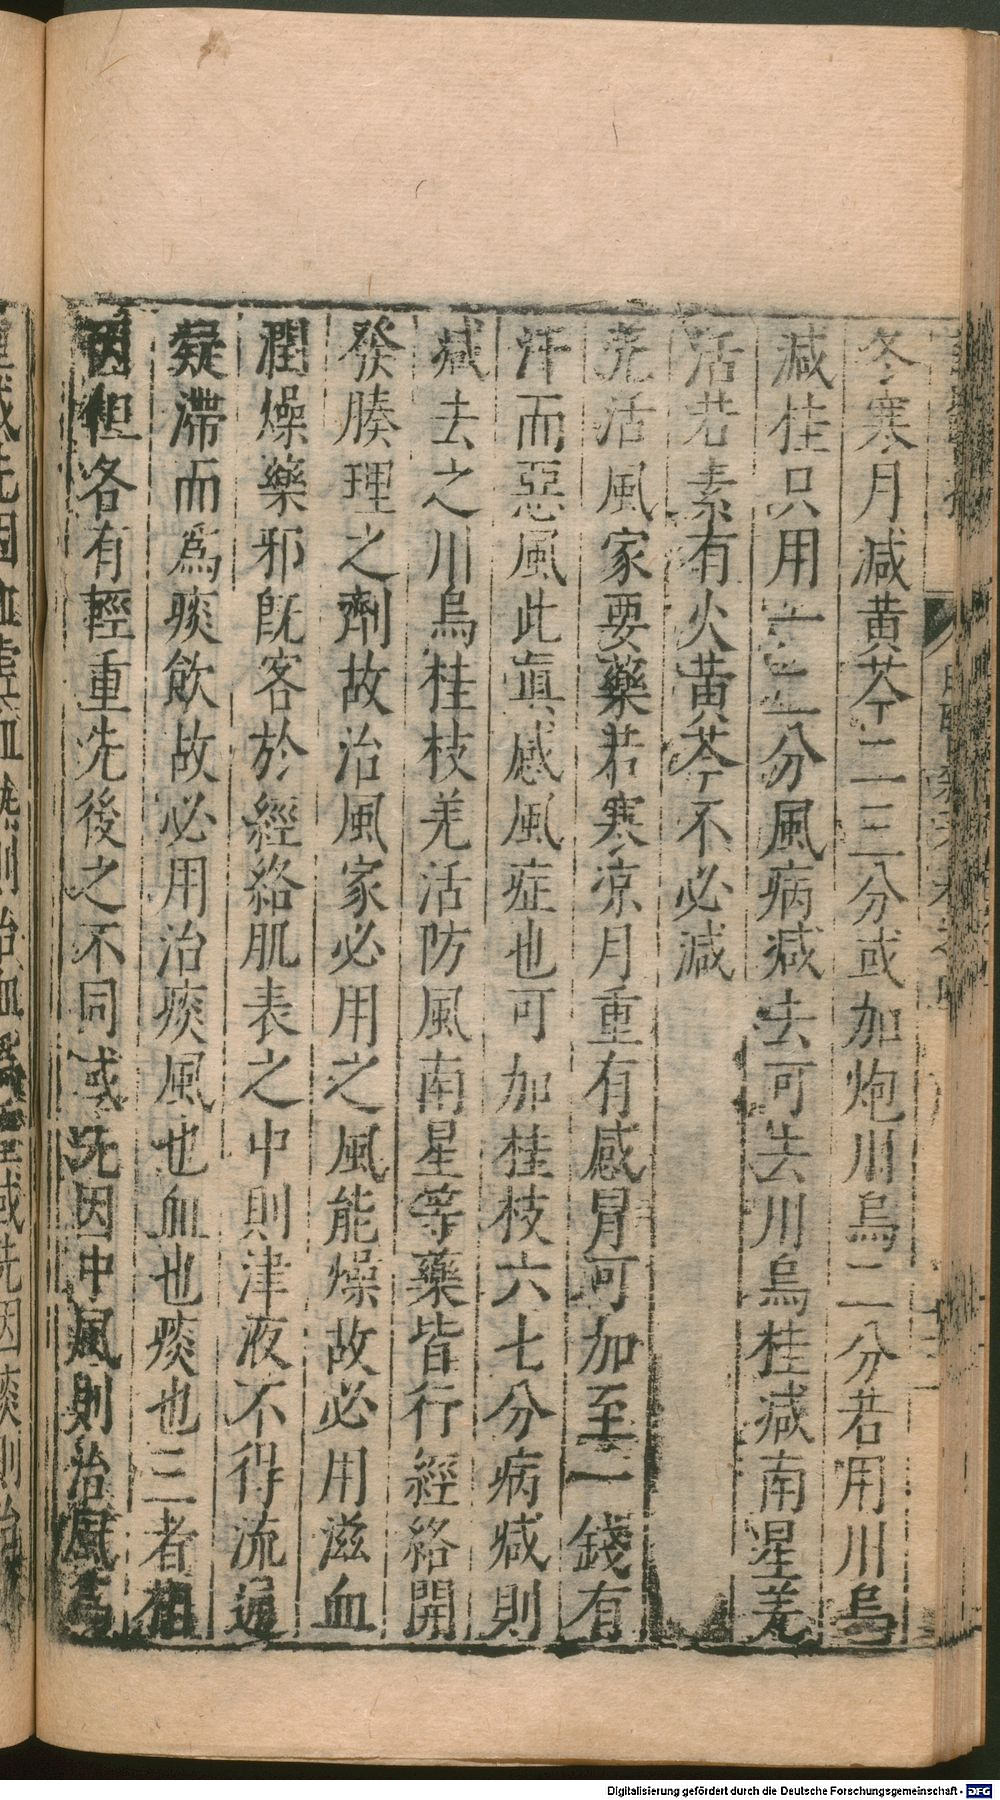 冬寒月減黄芩二三分或加炮川烏二分若用川烏
減桂只用一二分風病減去可去川烏桂減南星羌
活若素有火黄芩不必減
羌活風家要藥若寒凉月重有感冒可加至一錢有
汗而惡風此眞感風症也可加桂枝六七分病減則
減去之川烏桂枝羌活防風南星等藥皆行經絡開
發腠理之劑故治風家必用之風能燥故必用滋血
潤燥藥邪旣客於經絡肌表之中則津液不得流通
凝滯而爲痰飲故必用治痰風也血也痰也三者相
因但各有輕重先後之不同或先因中風則治風爲
Digitalisierung gefördert durch die Deutsche Forschungsgemeinschaft - DFG